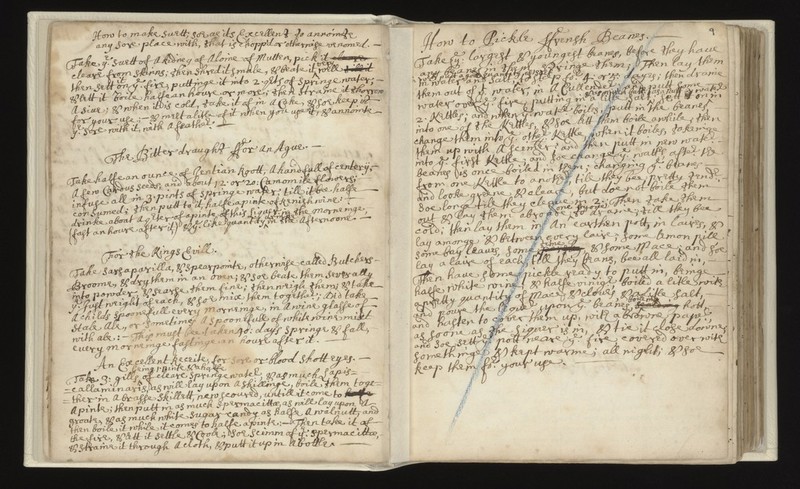 How to make Suett; soe as its Excellent to annointe
any sore place with, that is chopp'd or otherwise venomed.
Take ye: Suett of A Kidney of A lome of Mutton, pick it
cleare from skins, then shred it smale, & beate it well
then sett on ye: fire, putting to it into 2 qts of Springe water;
& lett it boile halfe an houre or more; then straine it through
A sive; & when it is cold, take it of in A Cake, & soe keep it
for your use; & melt A litle of it when you use it, & annointe
ye: Sore with it, with A feather.
The Bitter draught ffor an Ague.
Take halfe an ounce, of Gentian Roott, A handfull of Centory;
A few Carduus Seeds, and about 12: or 20: Camomile flowers;
infuse all in 3: pints of Springe water; till it be halfe
consumed; then putt to it halfe A pinte of Renish wine:
drinke about A qter of A pinte, of this liquor in the morninge,
(fast an houre after it) & ye: like quantity in the Afternoone.
For the Kings Evill.
Take Sarsaparilla, & Spearpoints, otherwise called Butchers
Broome, & dry them in an oven; & soe beate them severally
into ponder & searse them fine; then weigh them, & take
A Just weight of each, & soe mixe them together; & take
A childs spoonefull every morneinge, in A wine glasse of
Stale Ale, or Sometimes A spoonefull of white wine, mixt
with ale: This must be taken 30: days Springe & fall,
every morneinge fastinge an houre after it.
An Excellent receite, for Sore or blood Shott eyes.
being A pinte & halfe
Take 3: gills of cleare Springe water, & as much lapis=
=callaminaris, as will lay upon A shillinge, boile them toge=
=ther in A brasse Skillett, new scoured, untill it come to
A pinte; then putt in, as much Spermacittæ, as will lay upon A
groate, & as much white Sugar candy as halfe A walnutt; and
then boile it while it comes to halfe A pinte; Then take it of
the fire, & lett it settle & Coole; & soe Scimm of ye: Spermacittæ,
& straine it through A cloth, & putt it up in A bottle.
9
How to Pickle ffrensh Beanes.
Take ye: largest & youngest beanes, before they have
Stringe them; Then lay them
steep for 4 or 5 dayes; then draine
them out of ye: water, in A Cullender
water over ye: fire, putting in
2: Kettles; and when ye: water boiles, putt in the beanes
into one of the Kettles, & soe lett them boile awhile, then
change them into ye: other Kettle, when it boiles, takeinge
them up with A Scimer; and then putt in new water
into ye: first Kettle; and soe change ye: water after ye:
beanes is once boiled in them; changing ye: beanes
from one Kettle to another till they bee pretty tender
and looke greene & cleare; but doe not boile them
soe longe till they cleave in 2:; Then take them
out & lay them abroad to draine, till they bee
cold; then lay them in An earthen pott, in laires, &
lay amongst & between every laire; Some lemon pill
some bay leaves, some & some Mace; and soe
lay A laire of each, till they beans, bee all laid in,
Then have some pickle ready to putt in, beinge
halfe white wine & halfe vinegar boiled A litle with
A pretty quantity of Mace, & cloves, & A litle Salt,
and pour the liquor upon ye: beanes boyling hott,
and hasten to cover them up, with A browne paper,
as soone as the liquor is in, & tie it close downe
and soe, sett ye: pott neare ye: fire, covered over with
somethinge & kept warme; all night; & soe
keep them for your use.